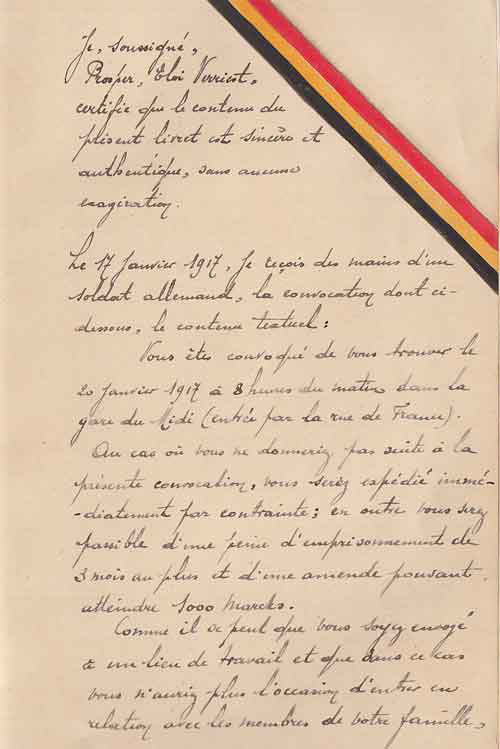 Je, soussigné,
Prosper, Eloi Verriest,
certifie que le contenu du
présent livret est sincère et
authentique, sans aucune
exagération.
Le 17 Janvier 1917, je reçois des mains d'un
soldat allemand, la convocation dont ci-
dessous, le contenu textuel :
Vous êtes convoqué de vous trouver le
20 Janvier 1917 à 8 heures du matin dans la
gare du Midi (entrée par la rue de France).
Au cas où vous ne donneriez pas suite à la
présente convocation, vous serez expédié immé-
-diatement par contrainte; en outre vous serez
passible d'une peine d'emprisonnement de
3 mois au plus et d'une amende pouvant
atteindre 1000 Marcks.
Comme il se peut que vous soyez envoyé
à un lieu de travail et que dans ce cas
vous n'auriez plus l'occasion d'entrer en
relation avec les membres de votre famille,